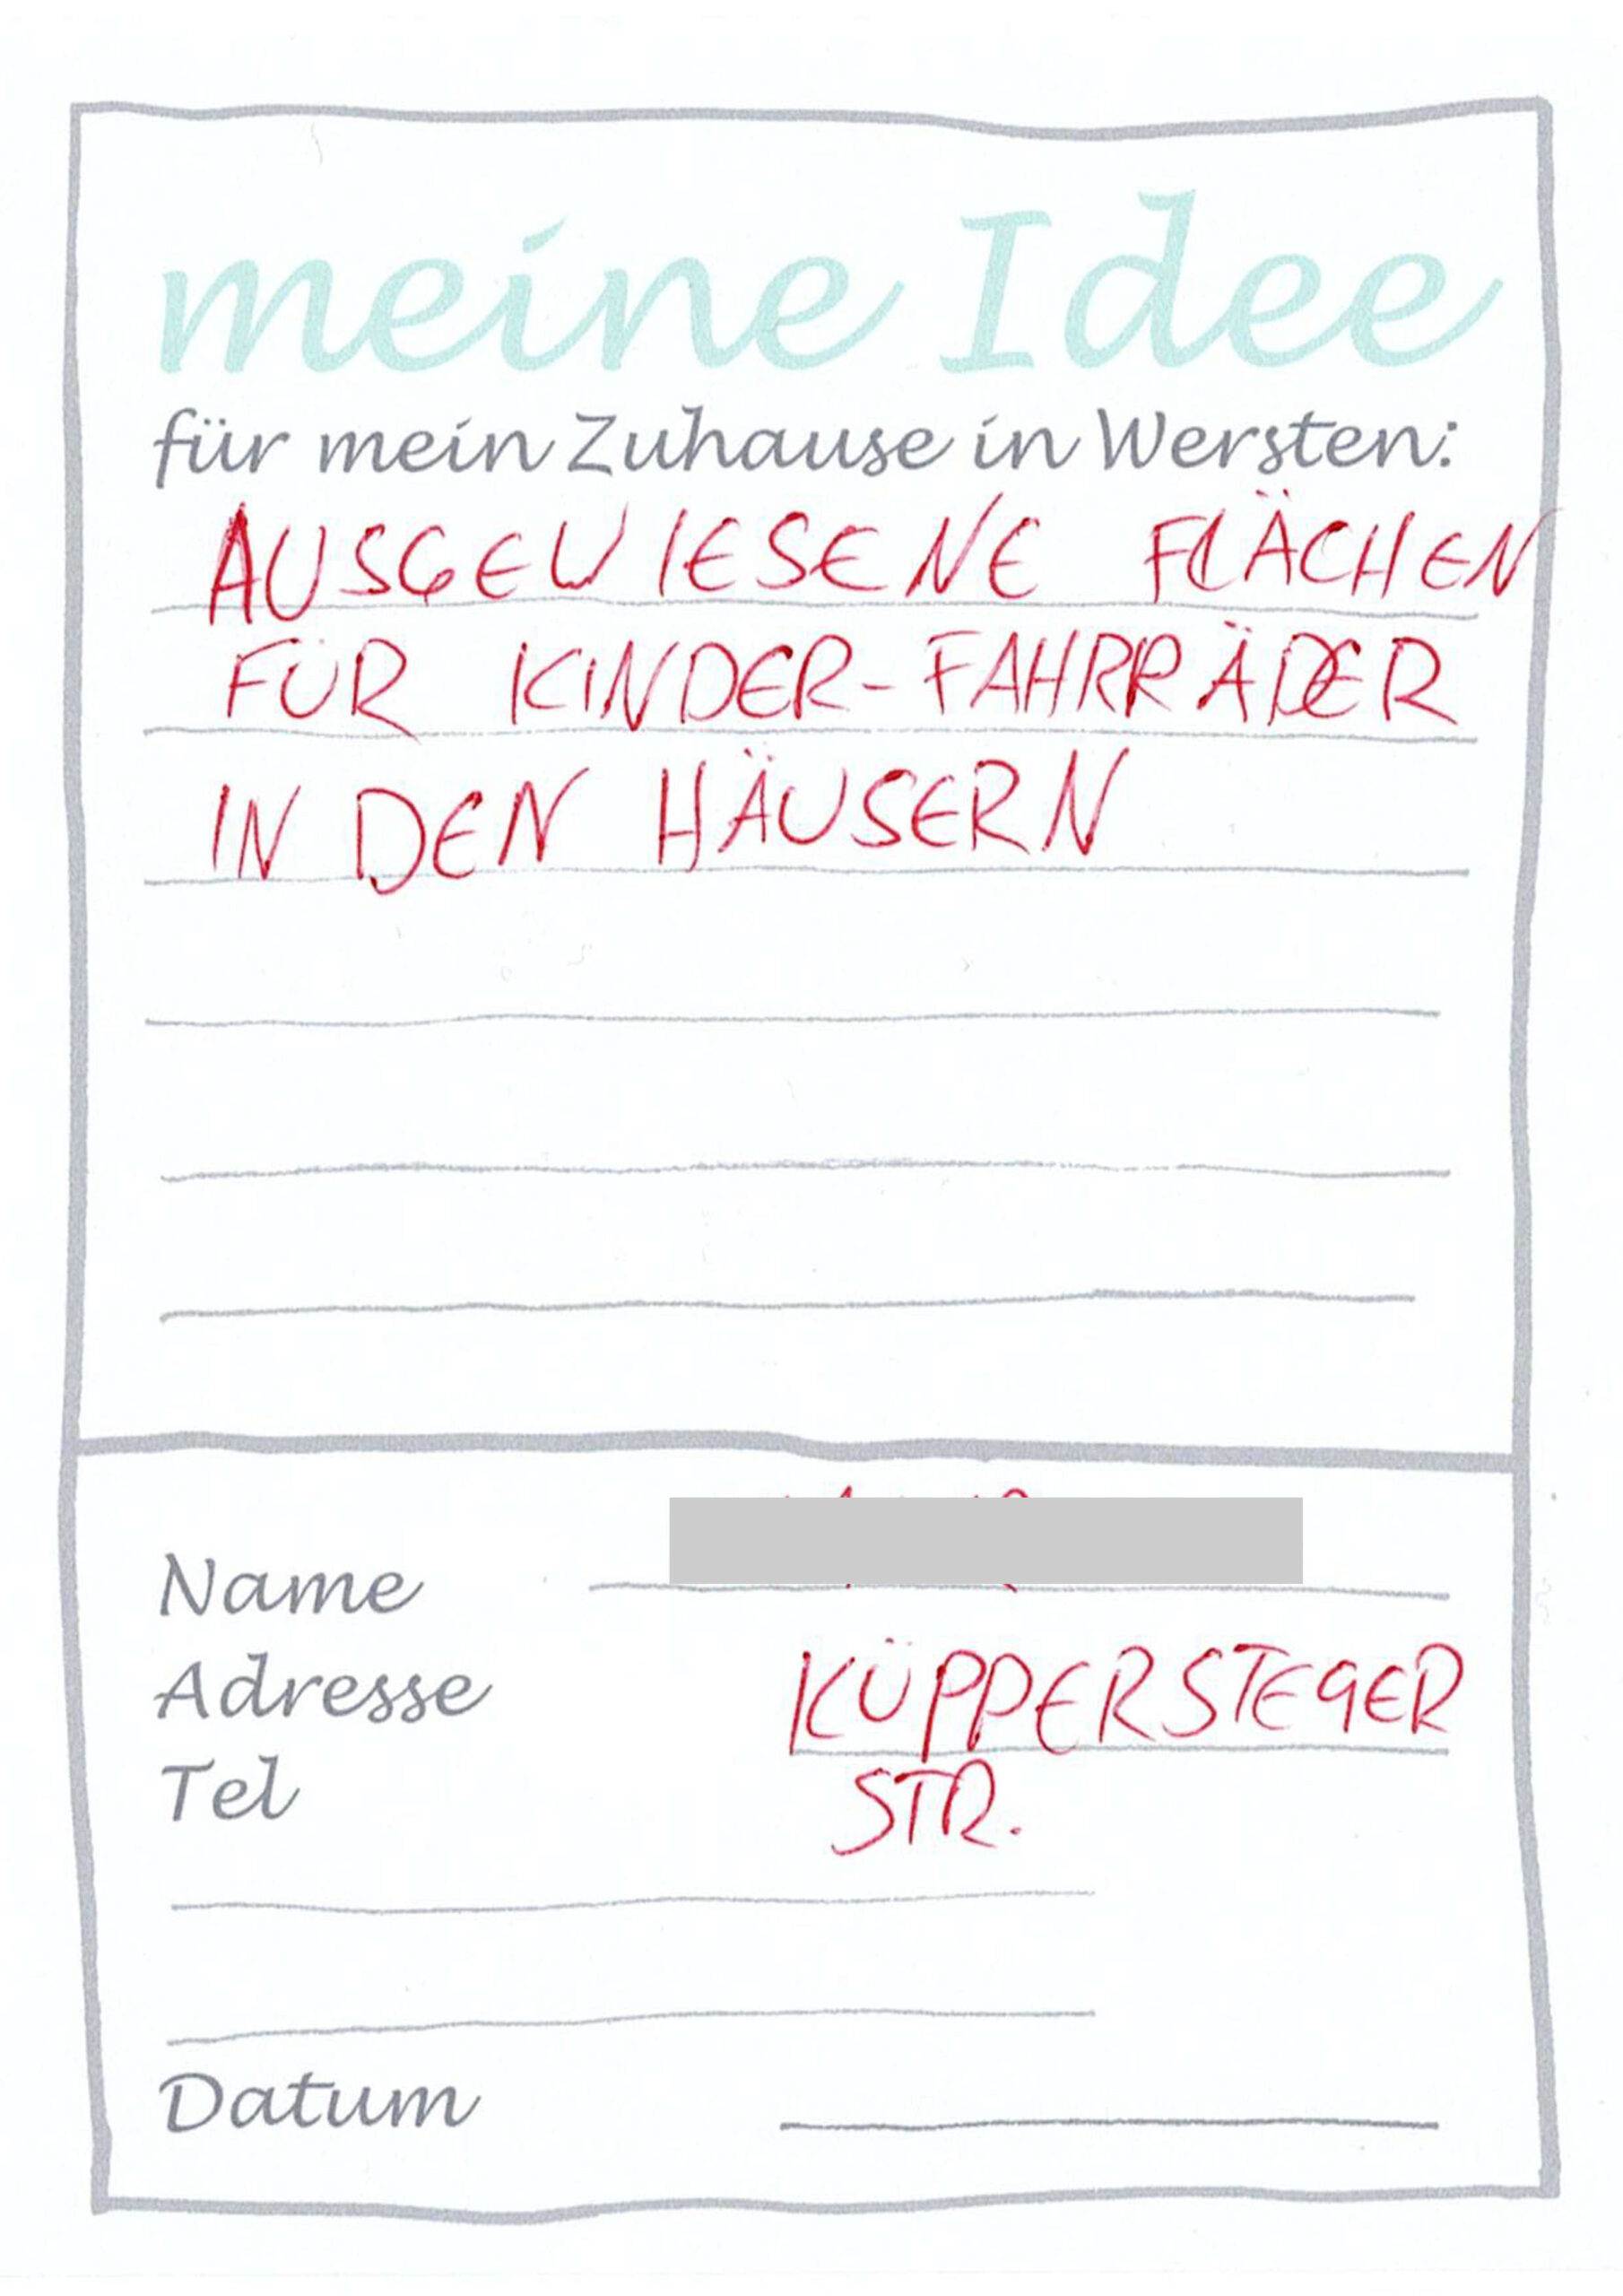 meine Idee
für mein Zuhause in Wersten:
AUSGEWIESENE FLÄCHEN
FÜR KINDER-FAHRRÄDER
IN DEN HÄUSERN
Name
Adresse KÜPPERSTEGER
Tel STR.
Datum